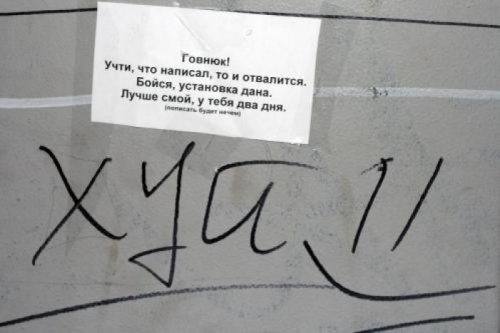 Говнюк!
Учти, что написал, то и отвалится.
Бойся, установка дана.
Лучше смой, у тебя два дня.
(пописать будет нечем)
хуй !!